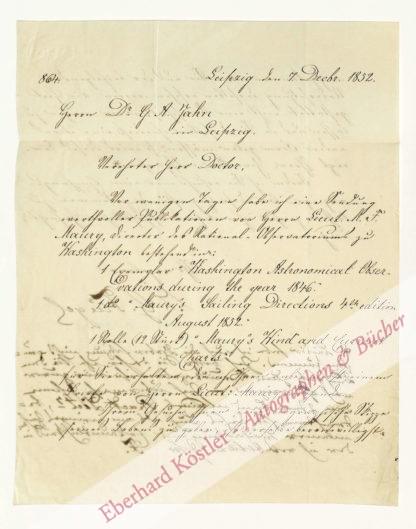 864.
Leipzig den 7. Decbr. 1852.
Herrn Dr. G. A. Jahn
in Leipzig.
Verehrter Herr Doctor,
Vor wenigen Tagen habe ich eine Sendung
werthvoller Publikationen von Herrn Lieut. M. F.
Maury, Director des National-Observatoriums zu
Washington bestehend in:
1 Exemplar "Washington Astronomical Obser-
vations during the year 1846."
1 do. "Maury's Sailing Directions 4th edition
August 1852."
1 Rolle (12 Stück) "Maury's Wind and
Charts"
für Sie erhalten
von Herrn Lieut. Maury
Herrn
seines Lebens zu geben,
Eberhard Köstler - Autographen & Bücher